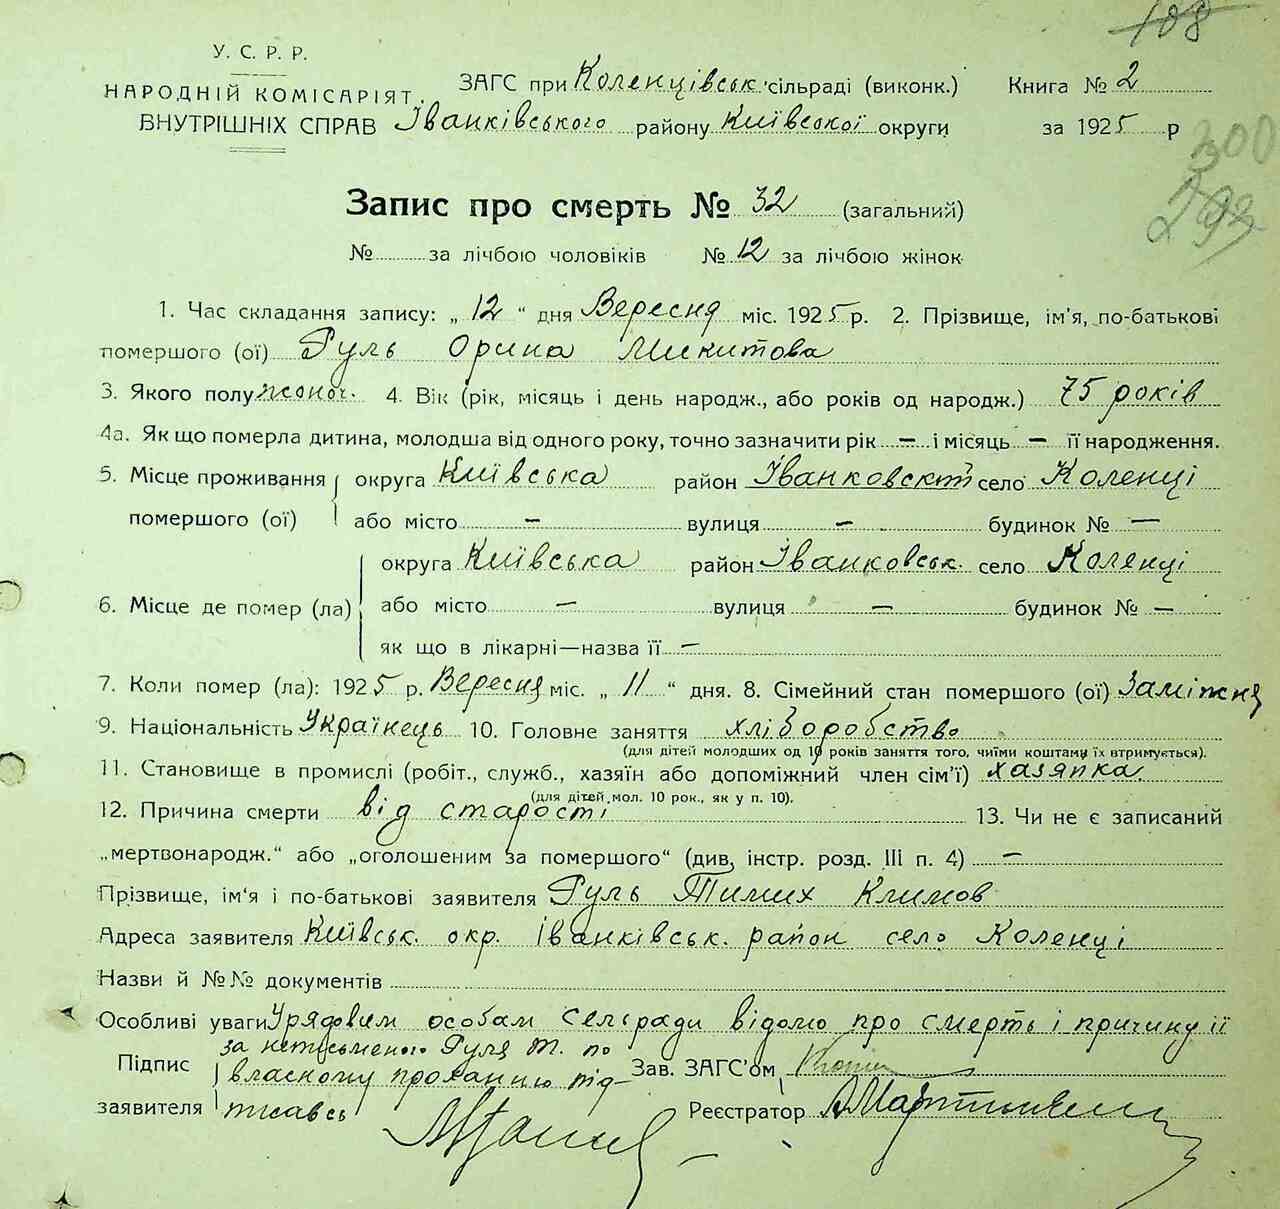 108
У. С. Р. Р.
НАРОДНІЙ КОМІСАРІЯТ
ВНУТРІШНІХ СПРАВ
ЗАГС при Коленцівськ. сільраді (виконк.) Книга № 2
Іванківського району Київської округи за 1925 р
300
293
Запис про смерть № 32 (загальний)
№ за лічбою чоловіків № 12 за лічбою жінок
1. Час складання запису: „ 12 “ дня Вересня міс. 1925 р. 2. Прізвище, ім'я, по-батькові
помершого (ої) Руль Орина Микитова
3. Якого полу жоноч. 4. Вік (рік, місяць і день народж., або років од народж.) 75 років
4а. Як що померла дитина, молодша від одного року, точно зазначити рік — і місяць — її народження.
5. Місце проживання округа Київська район Іванковскт село Коленці
помершого (ої) або місто — вулиця — будинок № —
округа Київська район Іванковськ. село Коленці
6. Місце де помер (ла) або місто — вулиця — будинок № —
як що в лікарні—назва її —
7. Коли помер (ла): 1925 р. Вересня міс. „ 11 “ дня. 8. Сімейний стан помершого (ої) Заміжня
9. Національність Українець 10. Головне заняття хліборобство
(для дітей молодших од 10 років заняття того, чиїми коштами їх втримується).
11. Становище в промислі (робіт., служб., хазяїн або допоміжний член сім'ї) хазяпка
(для дітей мол. 10 рок., як у п. 10).
12. Причина смерти від старості 13. Чи не є записаний
„мертвонародж.“ або „оголошеним за помершого“ (див. інстр. розд. III п. 4) —
Прізвище, ім'я і по-батькові заявителя Руль Тимих Климов
Адреса заявителя Київськ. окр. Іванківськ. район село Коленці
Назви й №№ документів
Особливі уваги Урядовим особам сельради відомо про смерть і причину її
Підпис за неписьменого Руля Т. по Зав. ЗАГС'ом
власному проханню під-
заявителя писавсь Реєстратор